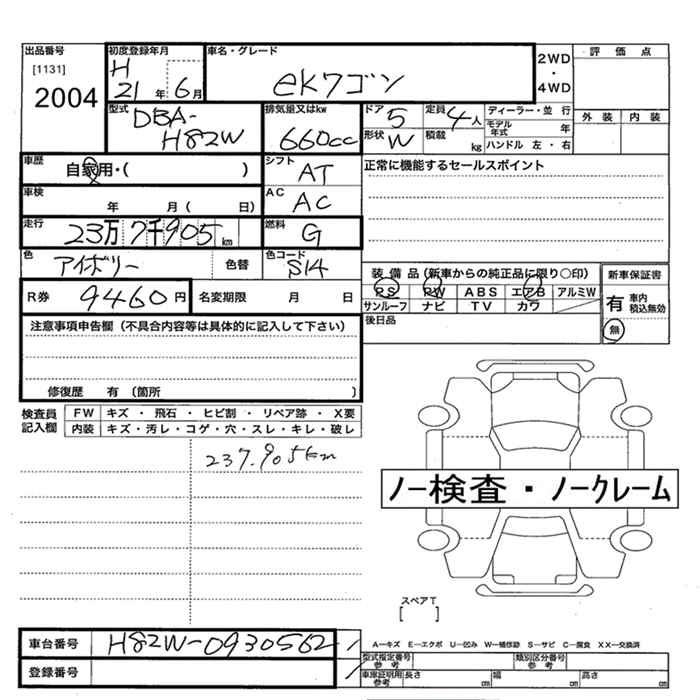 出品番号
[1131]
2004
初度登録年月
H
21年 6月
車名・グレード
eKワゴン
2WD
・
4WD
評価点
外装 内装
型式
DBA-
H82W
排気量又はkw
660cc
ドア
5
形状
W
定員
4人
積載
kg
ディーラー・並行
モデル
年式
年
ハンドル 左・右
車歴
自家用・( )
シフト
AT
正常に機能するセールスポイント
車検
年 月( 日)
AC
AC
走行
23万7千905km
燃料
G
色
アイボリー
色替
色コード
S14
装備品(新車からの純正品に限り○印)
PS PW ABS エアB アルミW
サンルーフ ナビ TV カワ
新車保証書
有
車内
積込無効
無
R券
9460円
名変期限 月 日
後日品
注意事項申告欄(不具合内容等は具体的に記入して下さい)
修復歴 有(箇所 )
検査員
記入欄
FW キズ・飛石・ヒビ割・リペア跡・X要
内装 キズ・汚レ・コゲ・穴・スレ・キレ・破レ
237,905km
ノー検査・ノークレーム
スペアT
[ ]
車台番号
H82W-0930562
登録番号
A−キズ E−エクボ U−凹み W−補修跡 S−サビ C−腐食 XX−交換済
型式指定番号
参考
類別区分番号
参考
車庫証明用
参考
長さ cm 幅 cm 高さ cm